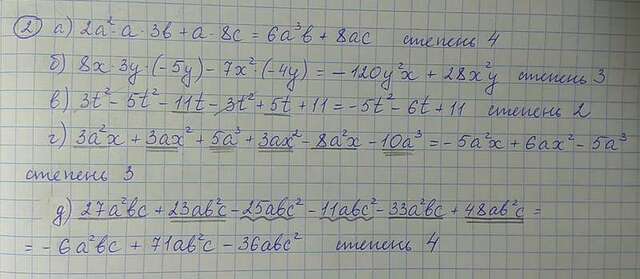 ② а) 2a²·a·3в + a·8c = 6a³в + 8ac степень 4
б) 8x·3y·(-5y) - 7x²·(-4y) = -120y²x + 28x²y степень 3
в) 3t² - 5t² - 11t - 3t² + 5t + 11 = -5t² - 6t + 11 степень 2
г) 3a²x + 3ax² + 5a³ + 3ax² - 8a²x - 10a³ = -5a²x + 6ax² - 5a³
степень 3
д) 27a²вc + 23aв²c - 25aвc² - 11aвc² - 33a²вc + 48aв²c =
= -6a²вc + 71aв²c - 36aвc² степень 4